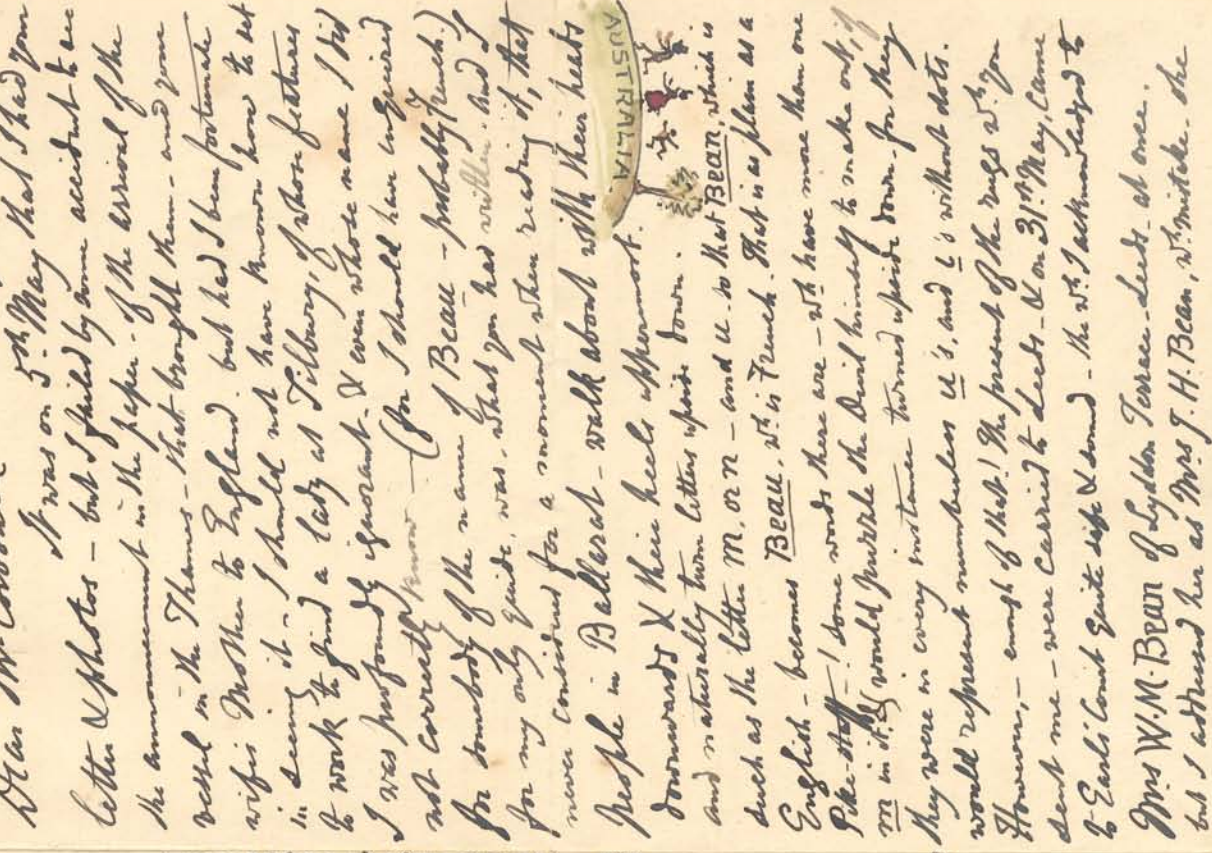 Dear
It was on 5th May that I had your
letter & photos – but I failed by some accident to see
the announcement in the paper – of the arrival of the
vessel in the Thames – that brought them – and your
wife's Mother to England. but had I been fortunate
in seeing it – I should not have known how to set
to work to find a lady at Tilbury, of whose features
I was profoundly ignorant – & even whose name I did
not correctly know – (for I should have inquired
for somebody of the name of Beau – probably French.)
for my only guide, was, what you had written. And I
never considered for a moment when reading it, that
people in Ballarat – walk about with their heads
downwards & their heels uppermost.
AUSTRALIA.
and naturally turn letters upside down.
such as the letter m. or n – and u. so that Bean, which is
English – becomes Beau. wh. is French. That is as plain as a
Pike-staff –! Some words there are – wh have more than one
m in it, & would puzzle the Devil himself to make out, if
they were in every instance turned upside down – for they
would represent numberless u's, and i's without dots.
However, – enough of that! The present of the rugs wh. you
sent me – were carried to Leeds – & on 31st. May, came
to Earls Court quite safe & sound – the wh. I acknowledged to
Mrs W. M. Bean of Lyddon Terrace – Leeds – at once.
but I addressed her as Mrs J. H. Bean, by mistake. She